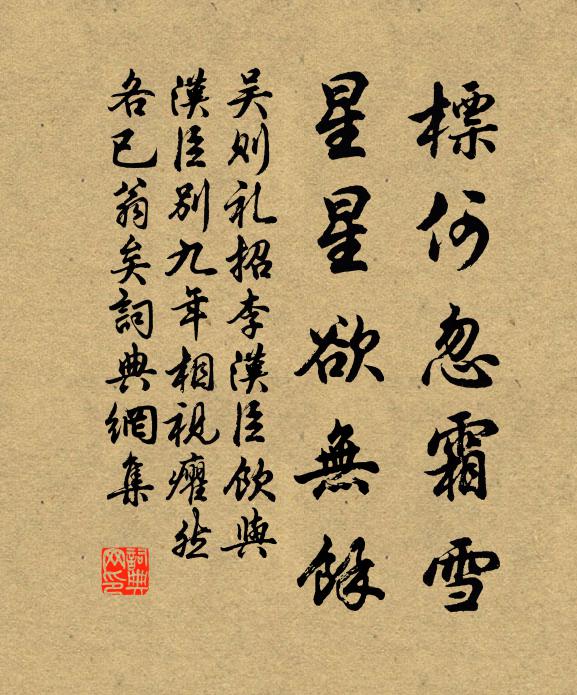 標何忽霜雪
星星欲無餘
吴则礼招李漢臣飲與
漢臣别九年相視癯然
各已翁矣詞典網集
詞典网印